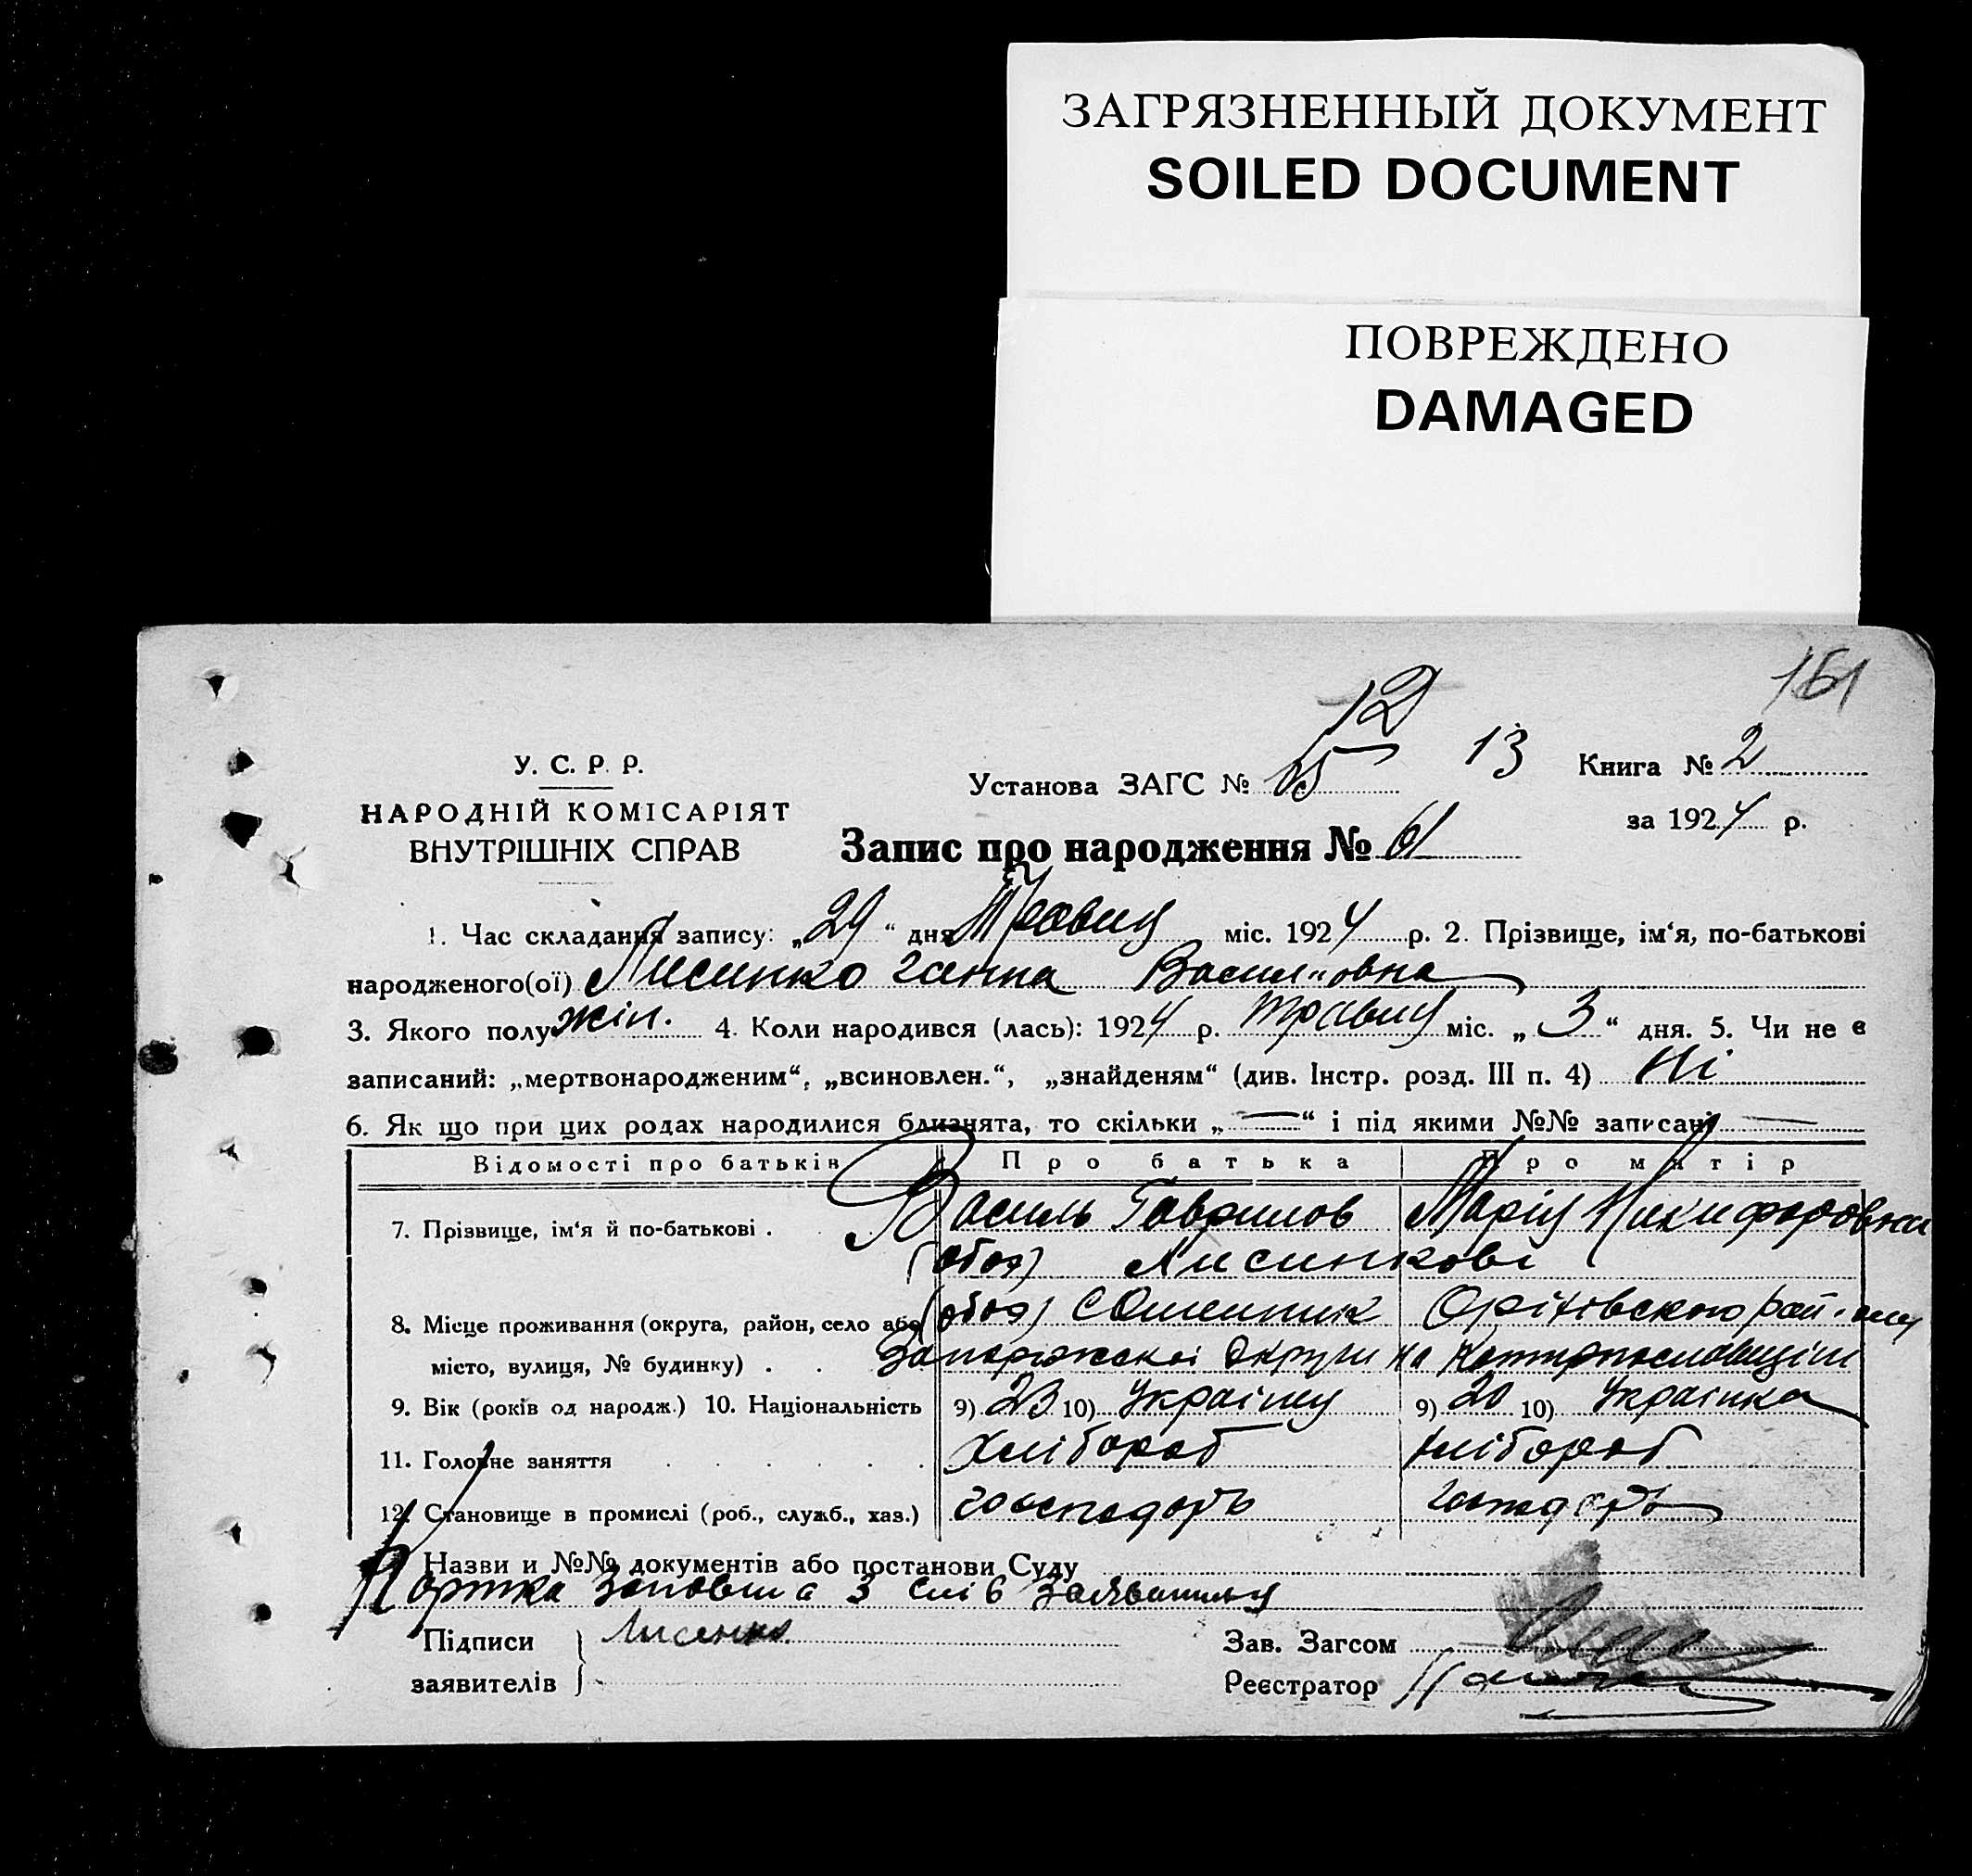 ЗАГРЯЗНЕННЫЙ ДОКУМЕНТ
SOILED DOCUMENT
ПОВРЕЖДЕНО
DAMAGED
161
12
У. С. Р. Р.
НАРОДНІЙ КОМІСАРІЯТ
ВНУТРІШНІХ СПРАВ
Установа ЗАГС № 13 Книга № 2
за 1924 р.
Запис про народження № 61
1. Час складання запису: „29“ дня Травня міс. 1924 р. 2. Прізвище, ім‘я, по-батькові
народженого(ої) Лисинко Ганна Василиовна
3. Якого полу жін. 4. Коли народився (лась): 1924 р. травня міс. „3“ дня. 5. Чи не є
записаний: „мертвонародженим“, „всиновлен.“, „знайденям“ (див. Інстр. розд. III п. 4) Ні
6. Як що при цих родах народилися близнята, то скільки „—“ і під якими №№ записані —
Відомості про батьків Про батька Про матір
7. Прізвище, ім‘я й по-батькові . Василь Гаврилов Марія Никифоровна
(обоя) Лисинкові
8. Місце проживання (округа, район, село або (обоя) Оріхівського
місто, вулиця, № будинку) . . Запоріжської Округи на
9. Вік (років од народж.) 10. Національність 9) 23 10) Україну 9) 20 10) Українка
11. Головне заняття . . . . . . Хлібороб хлібороб
12. Становище в промислі (роб., служб., хаз.) господарь господарь
Назви и №№ документів або постанови Суду
Картка заповнена з слів заявителя
Підписи
заявителів
Лисенко
Зав. Загсом
Реєстратор